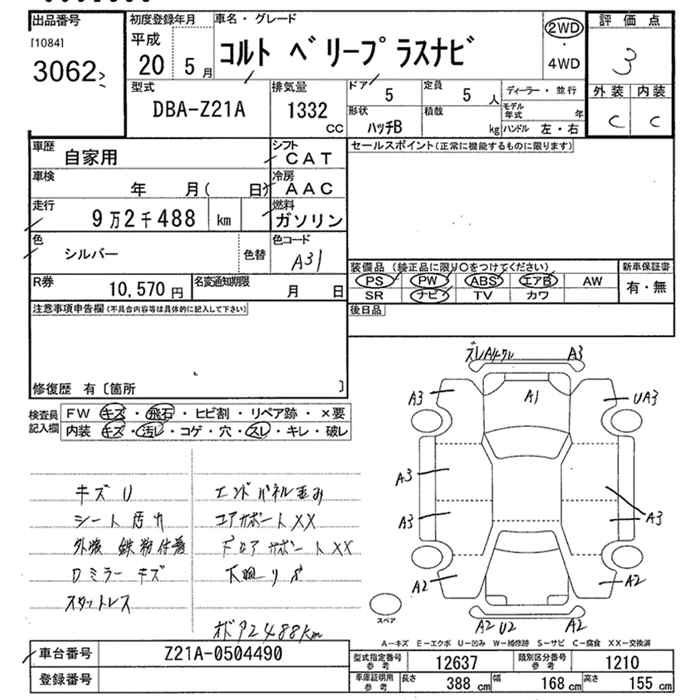 出品番号
[1084]
3062
初度登録年月
平成
20 5月
車名・グレード
コルト ベリープ ラスナビ
2WD
・
4WD
評価点
3
外装 内装
C C
型式
DBA-Z21A
排気量
1332
CC
ドア 5
定員 5 人
ディーラー・並行
形状
ハッチB
積載
kg
モデル年式 年
ハンドル 左・右
車歴
自家用
シフト
CAT
車検
年 月( 日)
冷房
AAC
走行
9万2千488 km
燃料
ガソリン
色
シルバー
色替
色コード
A31
R券
10,570円
名変通知期限
月 日
セールスポイント(正常に機能するものに限ります)
装備品 (純正品に限り○をつけてください)
新車保証書
PS PW ABS エアB AW
SR ナビ TV カワ
有・無
後日品
注意事項申告欄(不具合内容等は具体的に記入して下さい)
修復歴 有〔箇所 〕
検査員記入欄
FW キズ・飛石・ヒビ割・リペア跡・×要
内装 キズ・汚レ・コゲ・穴・スレ・キレ・破レ
キズU
シート汚れ
外装 鉄粉付着
ロミラーキズ
スタットレス
エンドパネル歪み
コアサポートXX
ドロアサポートXX
下廻りサ
メータ2488Km
A3
A3
A1
UA3
A3
A3
A3
A2
A2
A2 U2
A2
スペア
A-キズ E-エクボ U-凹み W-補修跡 S-サビ C-腐食 XX-交換済
車台番号
Z21A-0504490
登録番号
型式指定番号
参考
12637
類別区分番号
参考
1210
車庫証明用
参考
長さ 388 cm
幅 168 cm
高さ 155 cm